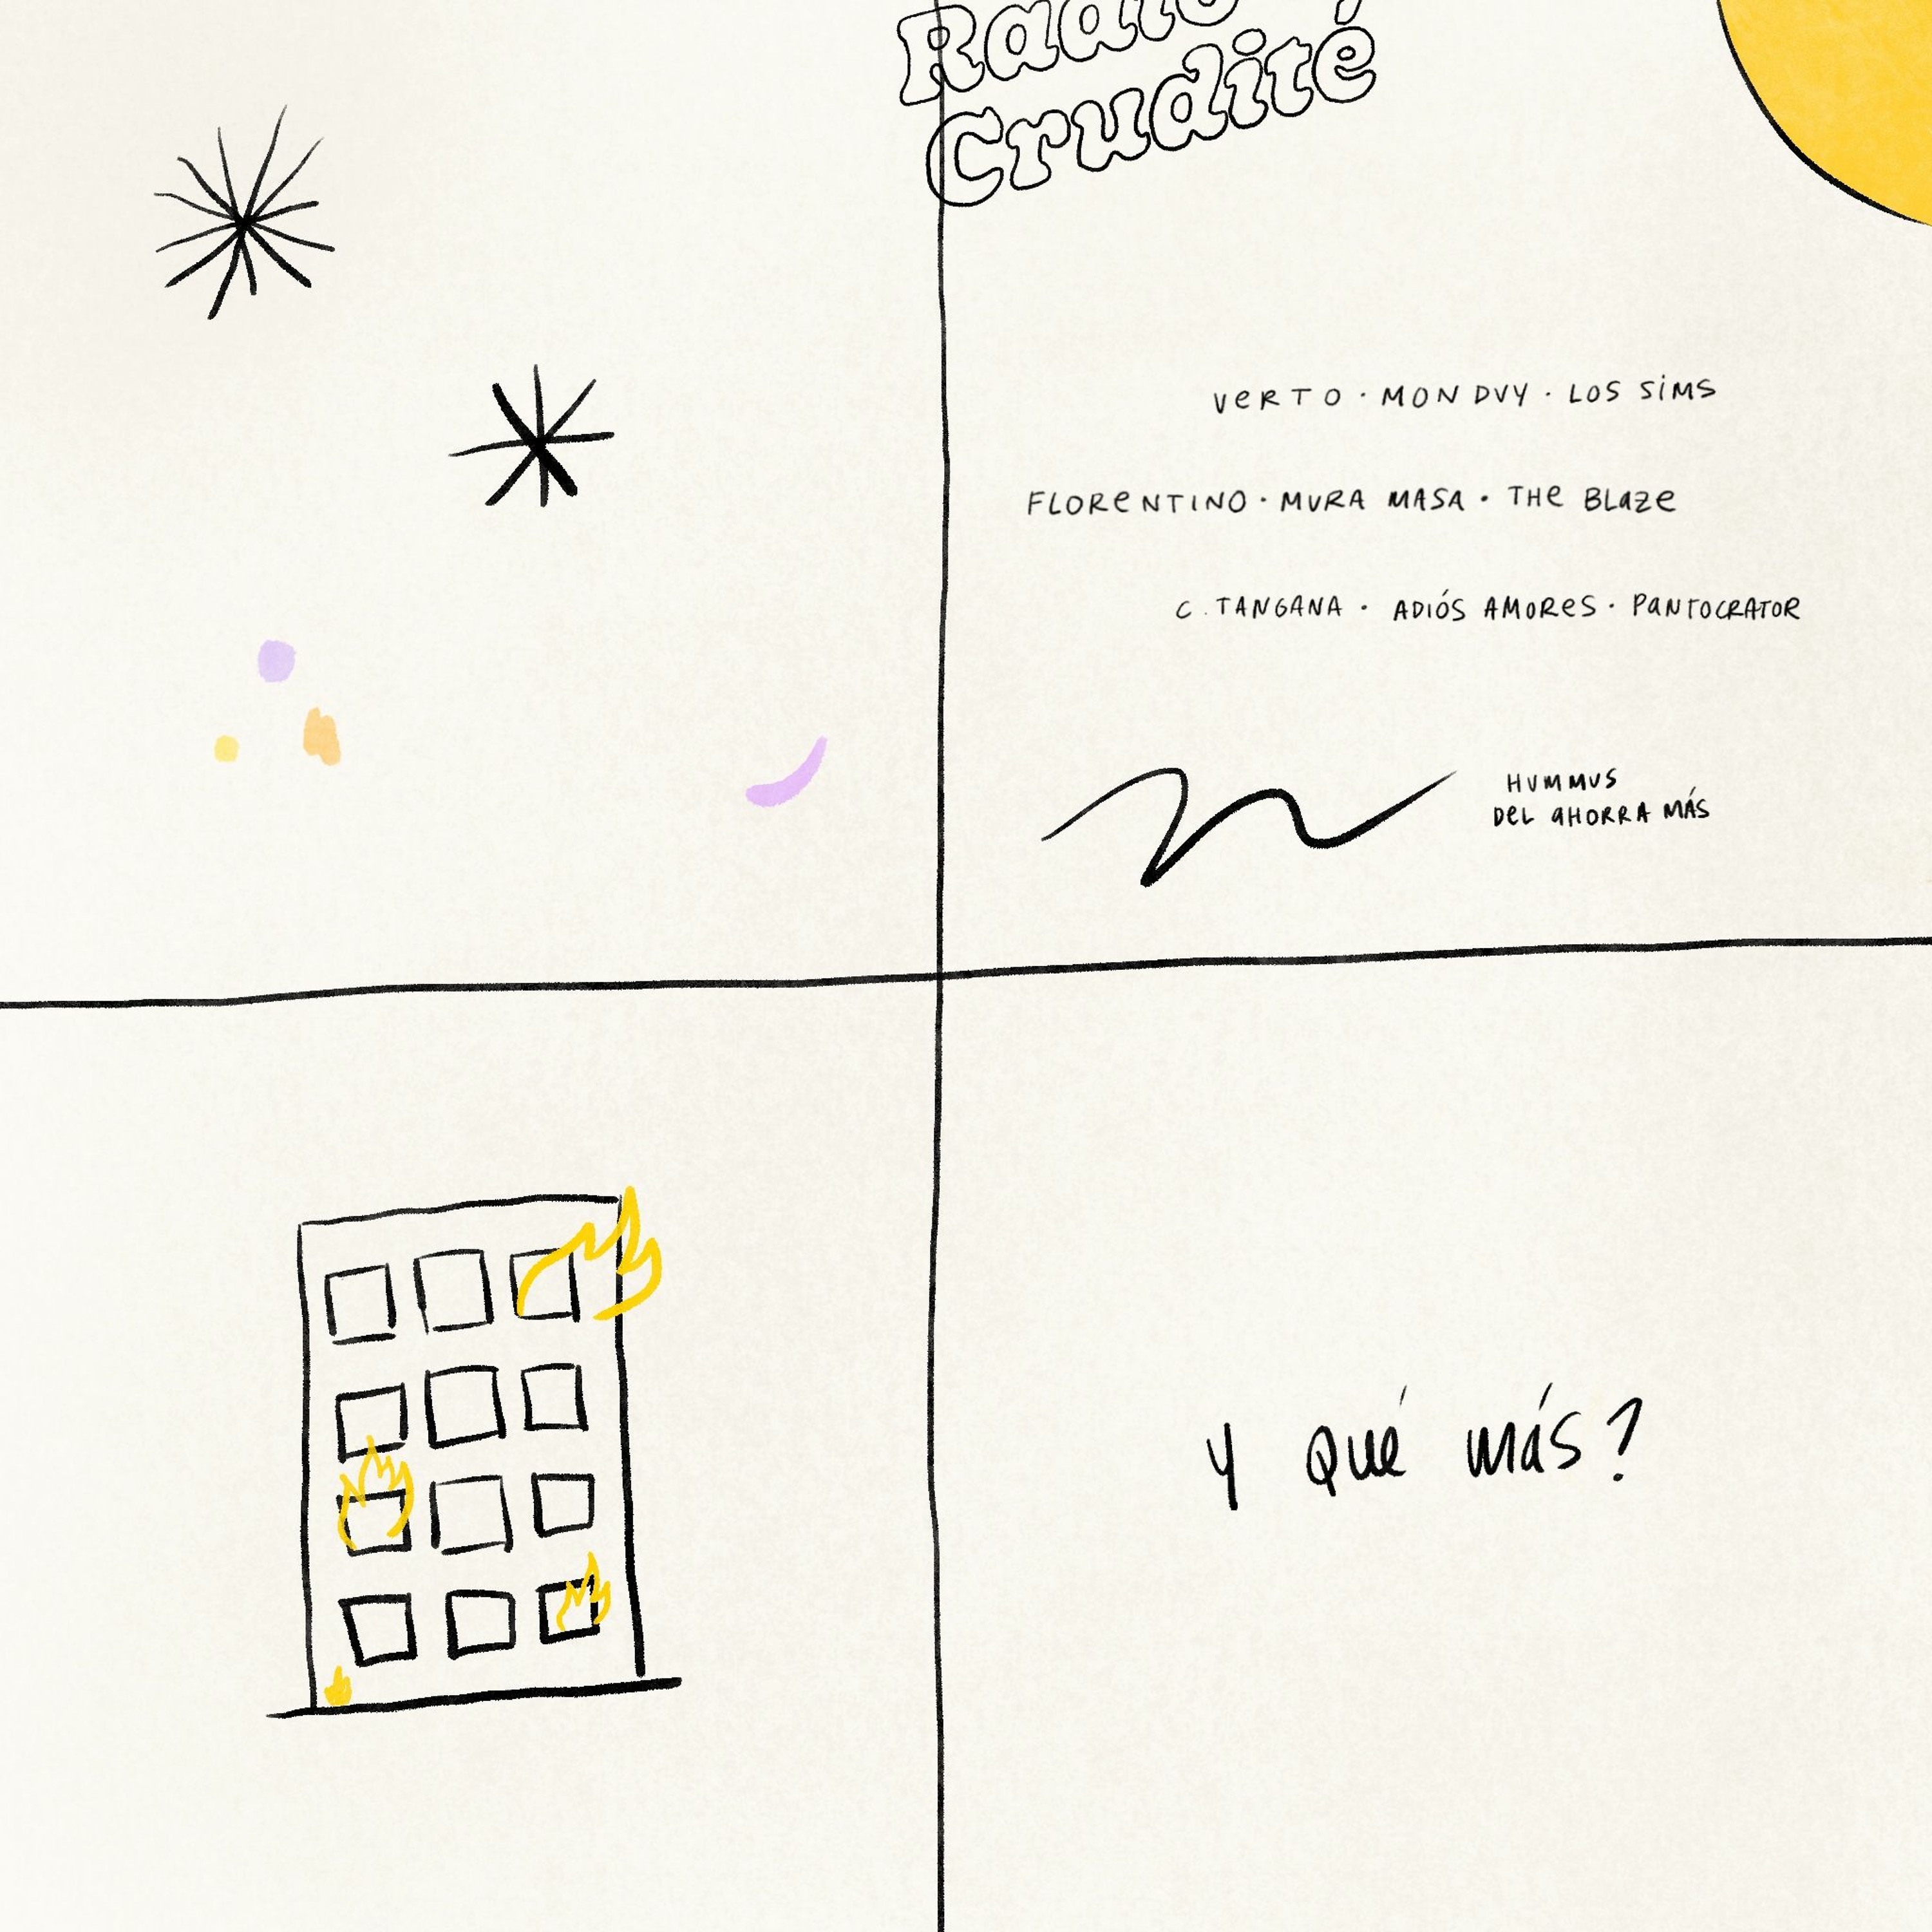 Radio
Crudité
VeRTO · MONDVY · LOS SiMS
FLOReNTINO · MVRA MASA · THe BLaze
C. TANGANA · ADIÓS AMOReS · PaNTOCRATOR
HVMMVS
DeL aHORRA MÁS
y qué más?